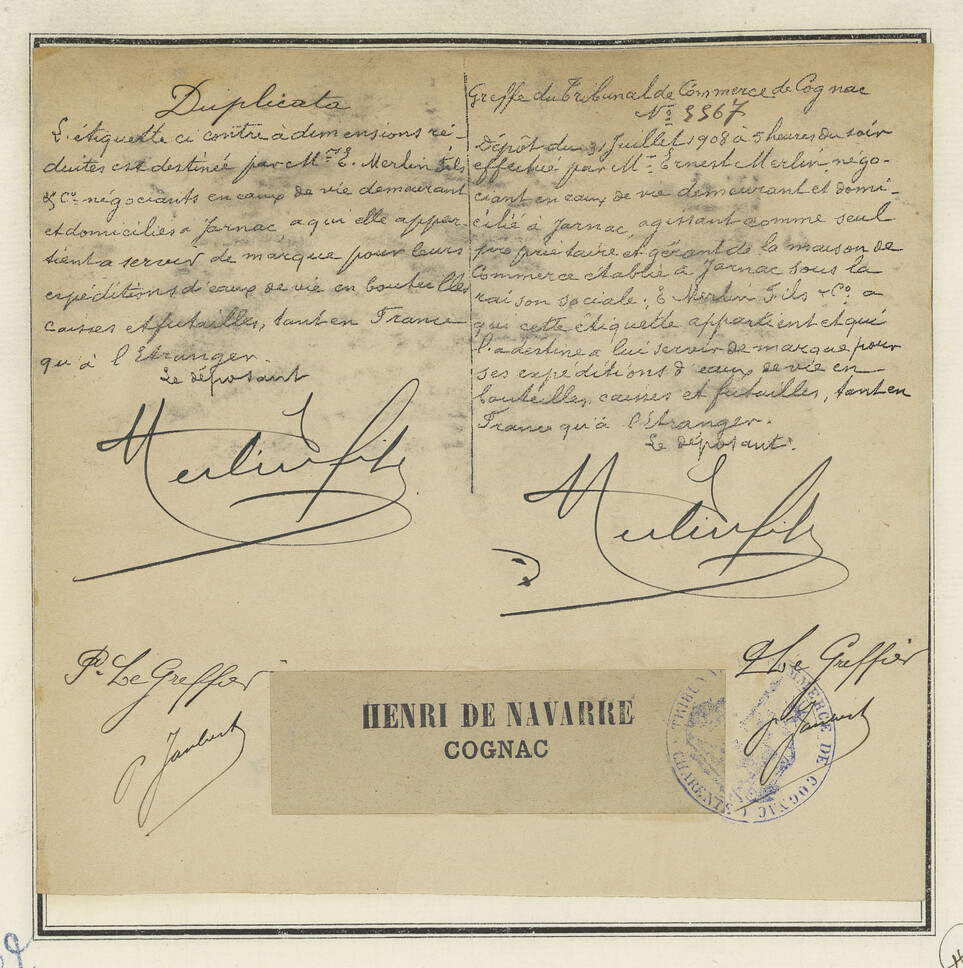 Duplicata
L'étiquette ci contre à dimensions ré-
duites est destinée par Mrs E. Merlin Fils
& Co. négociants en eaux de vie demeurant
et domiciliés à Jarnac, a qui elle appar-
tient a servir de marque pour leurs
expéditions d'eaux de vie en bouteilles
caisses et futailles, tant en France
qu'à l'Etranger.
Le déposant
Merlin fils
Greffe du Tribunal de Commerce de Cognac
No 3367
Dépôt du 31 Juillet 1908 à 5 heures du soir
effectué par Mr Ernest Merlin négo-
ciant en eaux de vie demeurant et domi-
cilié à Jarnac, agissant comme seul
propriétaire et gérant de la maison de
Commerce établie à Jarnac sous la
raison sociale. E Merlin Fils & Co. a
qui cette étiquette appartient et qui
l'a destine a lui servir de marque pour
ses expéditions d'eaux de vie en
bouteilles, caisses et futailles, tant en
France qu'à l'Etranger.
Le déposant.
Merlin fils
Pr Le Greffier
Jaubert
HENRI DE NAVARRE
COGNAC
Le Greffier
Jaubert
TRIBUNAL COMMERCE DE COGNAC
CHARENTE